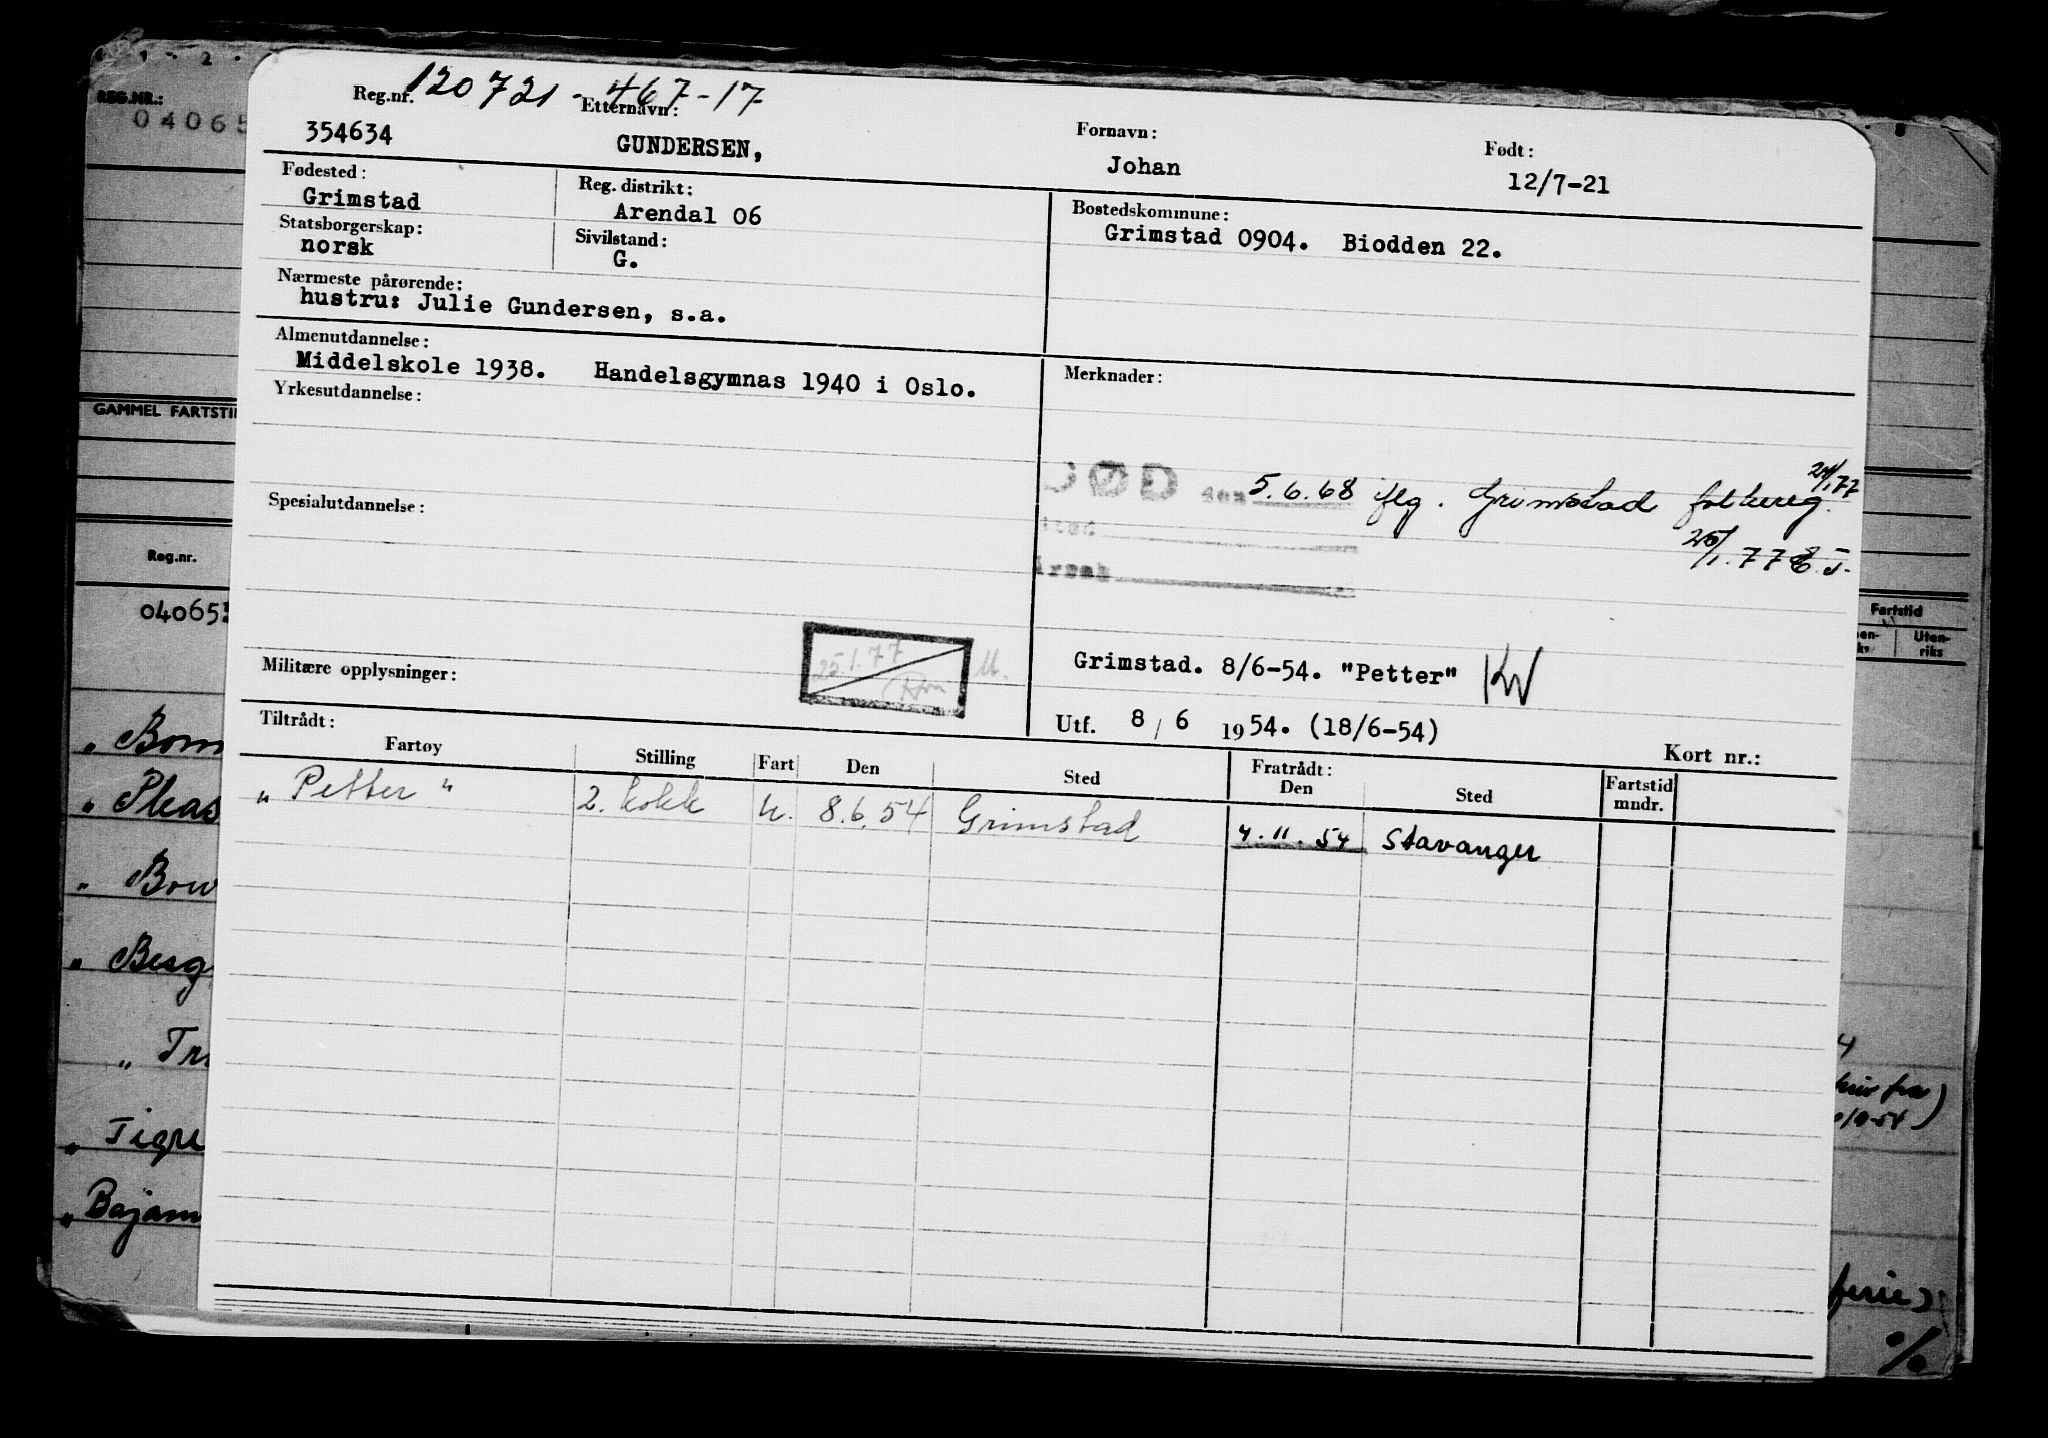 120721-467-17
Reg.nr. Etternavn: Fornavn: Født:
354634 GUNDERSEN, Johan 12/7-21
Fødested: Reg. distrikt: Bostedskommune:
Grimstad Arendal 06 Grimstad 0904. Biodden 22.
Statsborgerskap: Sivilstand:
norsk G.
Nærmeste pårørende:
hustru: Julie Gundersen, s.a.
Almenutdannelse: Merknader:
Middelskole 1938. Handelsgymnas 1940 i Oslo.
Yrkesutdannelse:
DØD den 5.6.68 iflg. Grimstad folkereg.
Spesialutdannelse:
sted
25/1.77 E.J.
Årsak
25.1.77
Militære opplysninger:
Grimstad. 8/6-54. "Petter" KW
Utf. 8/6 1954. (18/6-54)
Tiltrådt: Kort nr.:
Fartøy Stilling Fart Den Sted Fratrådt: Den Sted Fartstid mndr.
"Petter" 2. kokk u. 8.6.54 Grimstad 4.11.54 Stavanger
REG.NR.:
04065
GAMMEL FARTSTI
Reg.nr.
04065
Fartstid
Uten-
riks
" Bom
" Pleas
" Bow
" Berg
" Tr
" Tigre
" Bajam
ferie)
%